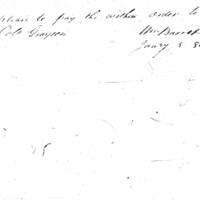 Please to pay the within order to
Cole Grayson
Wm Barret
Jany 5